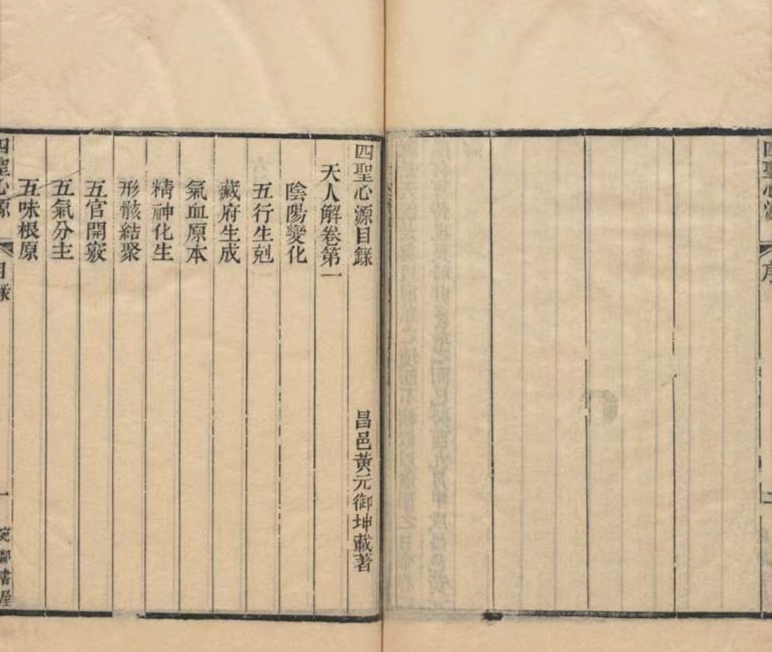 四聖心源
序
四聖心源目錄
昌邑黃元御坤載著
天人解卷第一
陰陽變化
五行生剋
藏府生成
氣血原本
精神化生
形骸結聚
五官開竅
五氣分主
五味根原
四聖心源
目錄
一
書屋